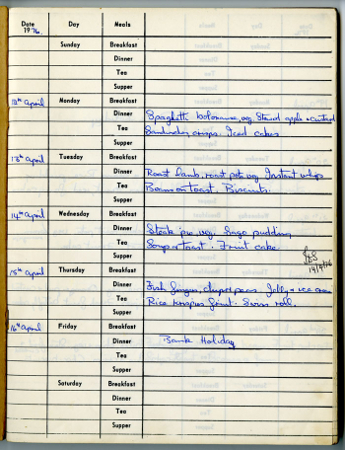 Date Day Meals
19 76
Sunday Breakfast
Dinner
Tea
Supper
12th April Monday Breakfast
Dinner Spaghetti bolognaise, veg Stewed apple + custard
Tea Sandwiches crisps. Iced cakes
Supper
13th April Tuesday Breakfast
Dinner Roast lamb, roast pots, veg Instant whip
Tea Beans on toast. Biscuits.
Supper
14th April Wednesday Breakfast
Dinner Steak pie, veg. Sago pudding
Tea Soup + Toast. Fruit cake.
Supper
14/4/76
15th April Thursday Breakfast
Dinner Fish fingers, chips + peas. Jelly + ice cream
Tea Rice krispies fruit. Swiss roll.
Supper
16th April Friday Breakfast
Dinner Bank Holiday
Tea
Supper
Saturday Breakfast
Dinner
Tea
Supper